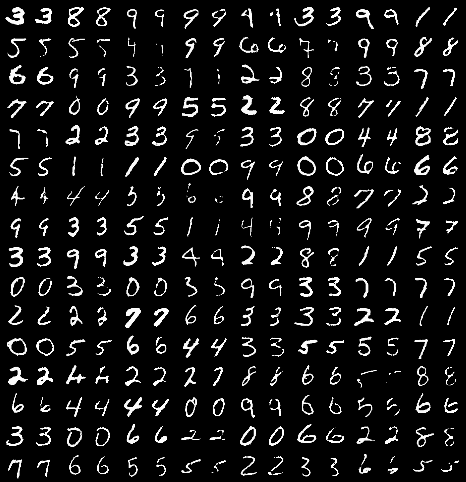 3 3 8 8 9 9 9 9 9 9 3 3 9 9 1 1
5 5 5 5 4 9 9 6 6 7 7 9 9 8 8
6 6 9 9 3 3 1 1 2 2 8 8 3 3 7 7
7 7 0 0 9 9 5 5 2 2 8 8 7 7 1 1
7 7 2 2 3 3 9 9 3 3 0 0 4 4 8 8
5 5 1 1 1 1 0 0 9 9 0 0 6 6 6 6
4 4 4 4 5 5 6 9 9 8 8 7 7 2 2
9 9 3 3 5 5 1 1 4 4 9 9 9 9 7 7
3 3 9 9 3 3 4 4 2 2 8 8 1 1 5 5
0 0 3 3 0 0 3 3 9 9 3 3 7 7 7 7
2 2 2 2 7 7 6 6 3 3 3 3 2 2 1 1
0 0 5 5 6 6 4 4 3 3 5 5 5 5 7 7
2 2 4 4 2 2 2 7 8 8 6 6 5 8 8
6 6 4 4 4 4 0 0 9 9 6 6 5 5 6 6
3 3 0 0 6 6 2 2 0 0 6 6 2 2 8 8
7 7 6 6 5 5 5 5 2 2 3 3 6 6 5 5